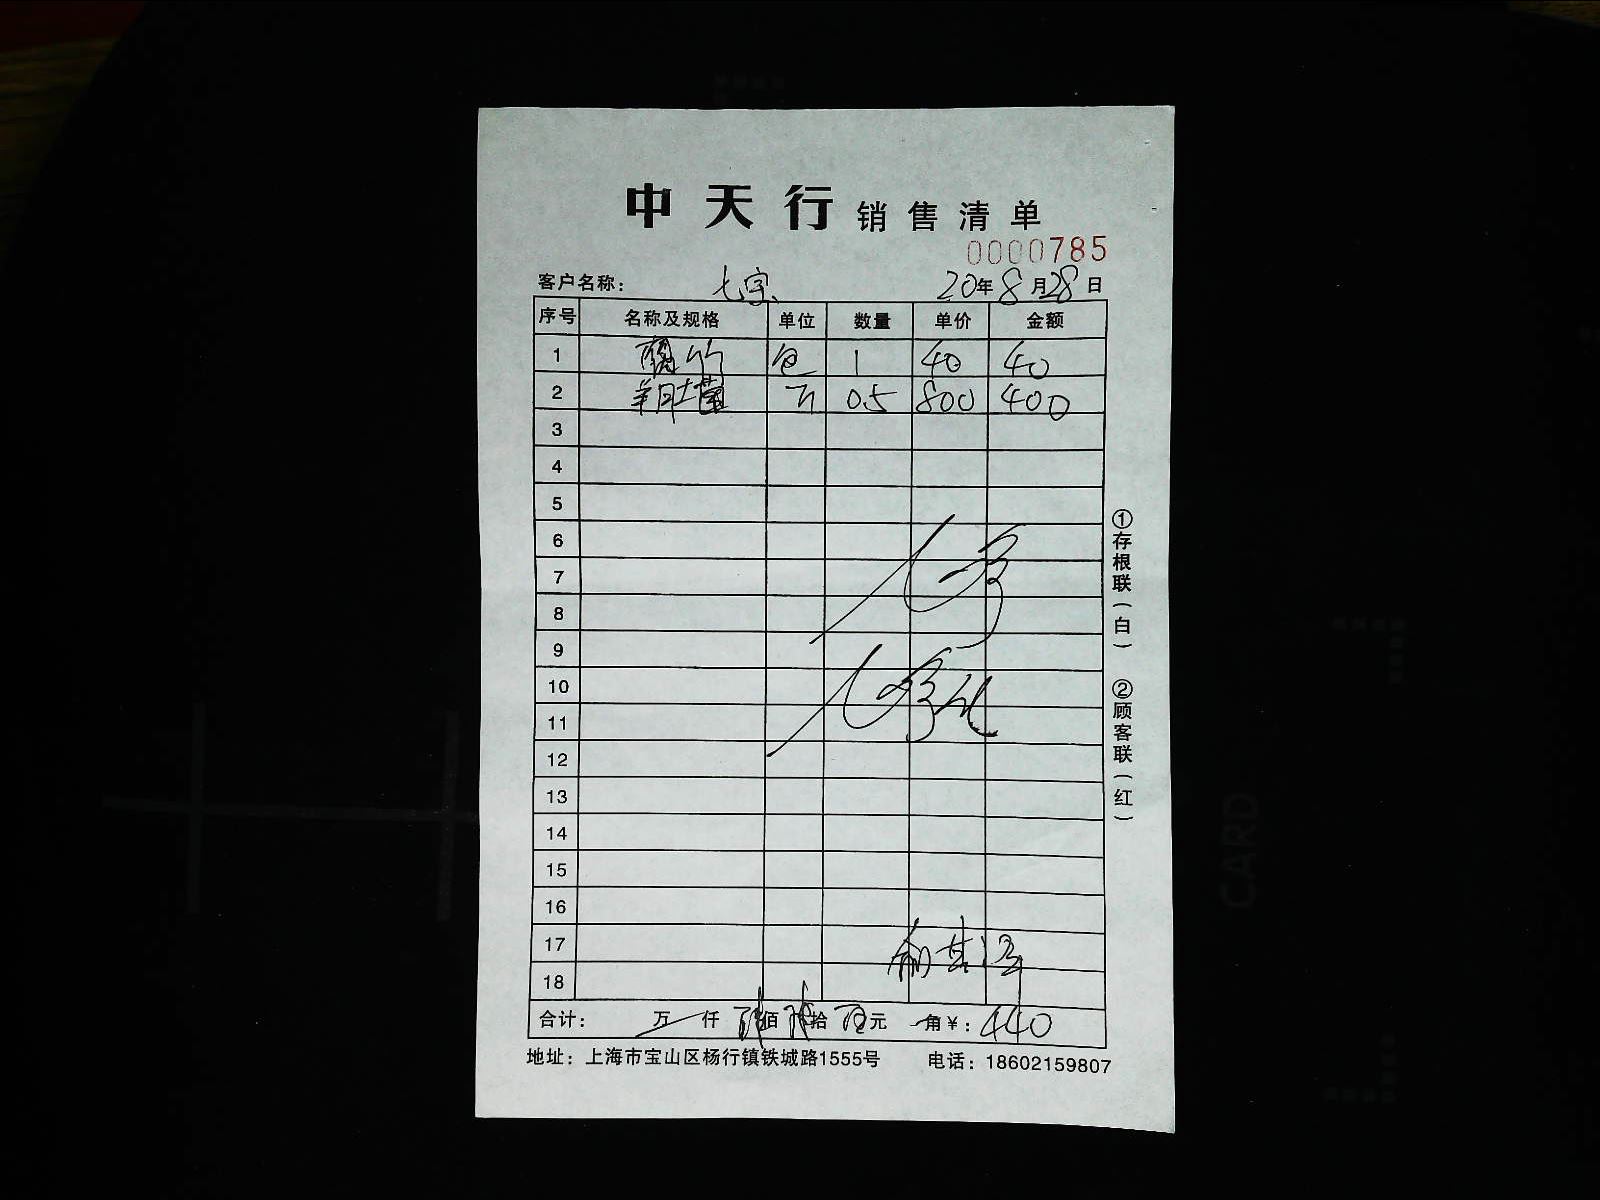 中天行销售清单
0000785
客户名称： 七宝 20年8月28日
序号 名称及规格 单位 数量 单价 金额
1 腐竹 包 1 40 40
2 羊肚菌 斤 0.5 800 400
3
4
5
6
7
8
9
10
11
12
13
14
15
16
17
18
合计： 万 仟 肆佰肆拾零元 角￥：440
地址：上海市宝山区杨行镇铁城路1555号 电话：18602159807
①存根联（白） ②顾客联（红）
CARD